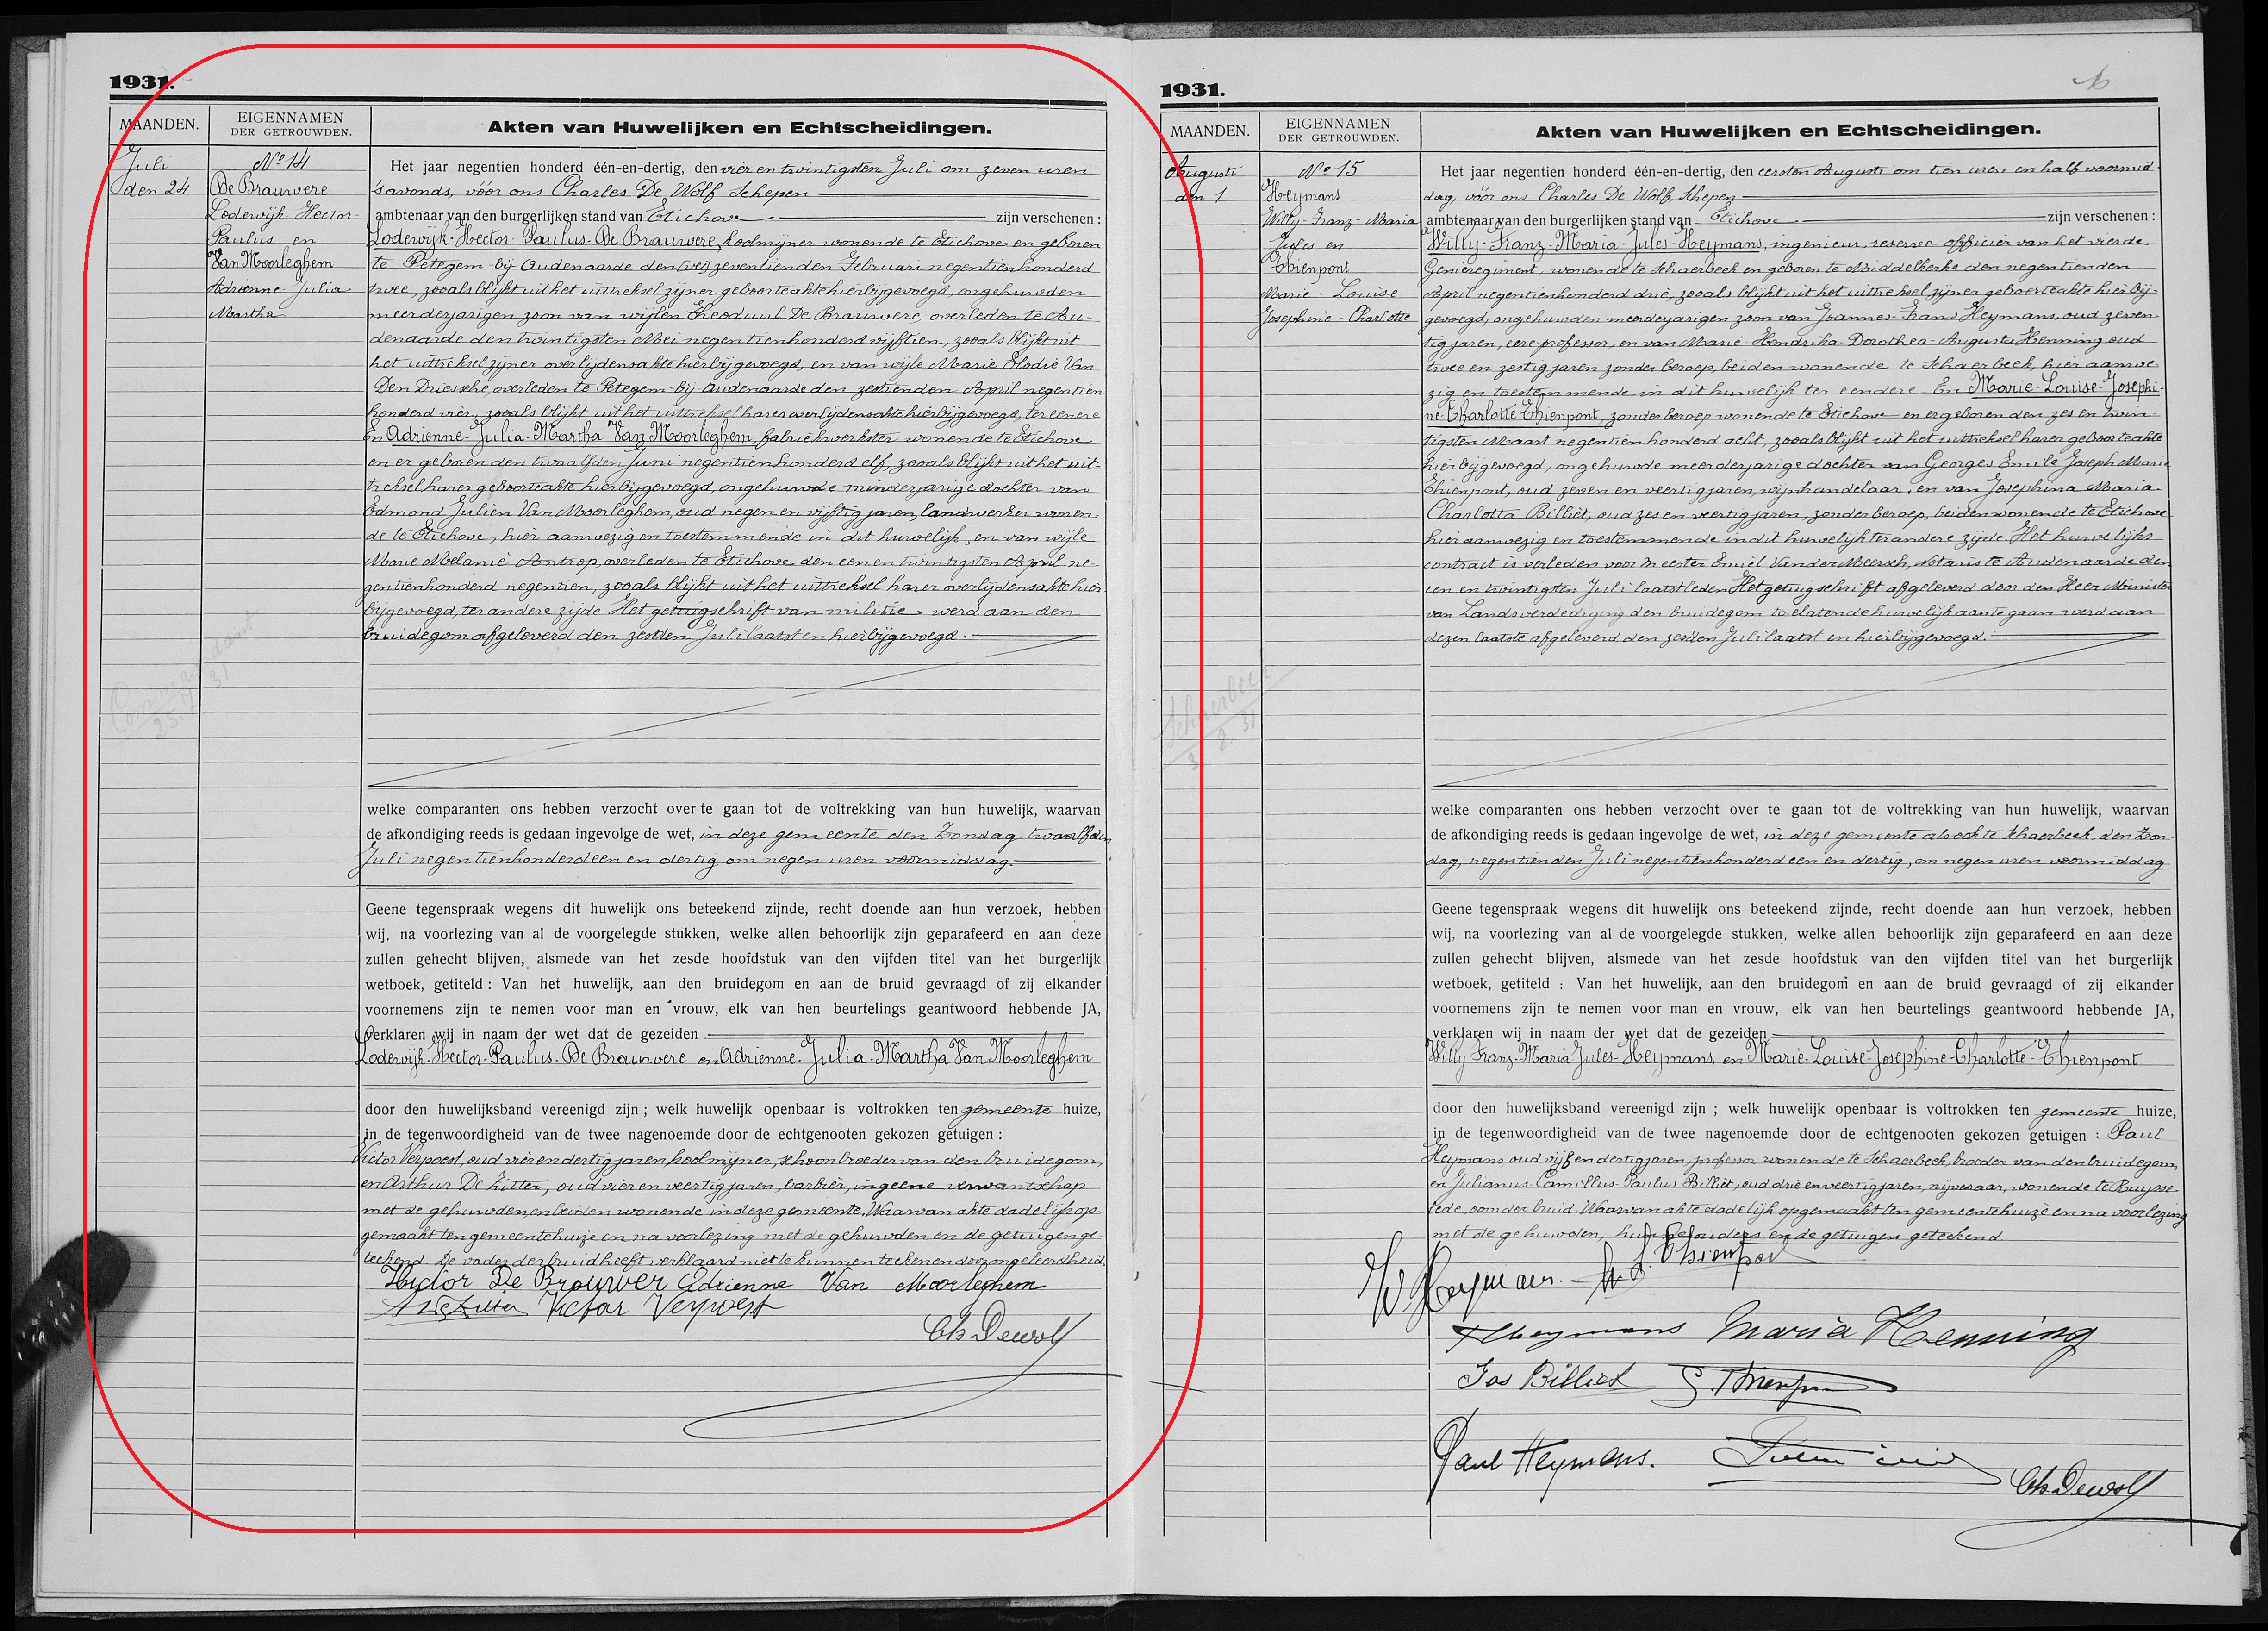 1931.
MAANDEN.
EIGENNAMEN
DER GETROUWDEN.
Akten van Huwelijken en Echtscheidingen.
Juli
den 24
No 14
De Brauwere
Lodewijk-Hector-
Paulus en
Van Moorleghem
Adrienne-Julia-
Martha
Het jaar negentien honderd één-en-dertig, den vier en twintigsten Juli om zeven uren
'savonds, vóór ons Charles De Wolf Schepen
ambtenaar van den burgerlijken stand van Etichove zijn verschenen :
Lodewijk-Hector-Paulus-De Brauwere, koolmijner wonende te Etichove en geboren
te Petegem-bij-Audenaarde den zeventienden Februari negentienhonderd
twee, zooals blijkt uit het uittreksel zijner geboorteakte hierbijgevoegd, ongehuwden
meerderjarigen zoon van wijlen Theoduul De Brauwere, overleden te Au-
denaarde den twintigsten Mei negentienhonderd vijftien, zooals blijkt uit
het uittreksel zijner overlijdensakte hierbijgevoegd, en van wijle Marie Elodie Van
Den Driessche, overleden te Petegem-bij-Audenaarde den zestienden April negentien
honderd vier, zooals blijkt uit het uittreksel harer overlijdensakte hierbijgevoegd, ter eenere
En Adrienne-Julia-Martha Van Moorleghem, fabriekwerkster wonende te Etichove
en er geboren den twaalfden Juni negentienhonderd elf, zooals blijkt uit het uit-
treksel harer geboorteakte hierbijgevoegd, ongehuwde minderjarige dochter van
Edmond Julien Van Moorleghem, oud negen en vijftig jaren, landwerker wonen-
de te Etichove, hier aanwezig en toestemmende in dit huwelijk, en van wijle
Marie Melanie Aontrop, overleden te Etichove den een en twintigsten April ne-
gentienhonderd negentien, zooals blijkt uit het uittreksel harer overlijdensakte hier
bijgevoegd, ter andere zijde Het getuigschrift van militie werd aan den
bruidegom afgeleverd den zesden Juli laatst en hierbijgevoegd.
25.7.31
welke comparanten ons hebben verzocht over te gaan tot de voltrekking van hun huwelijk, waarvan
de afkondiging reeds is gedaan ingevolge de wet, in deze gemeente den Zondag twaalfden
Juli negentienhonderd een en dertig om negen uren voormiddag.
Geene tegenspraak wegens dit huwelijk ons beteekend zijnde, recht doende aan hun verzoek, hebben
wij, na voorlezing van al de voorgelegde stukken, welke allen behoorlijk zijn geparafeerd en aan deze
zullen gehecht blijven, alsmede van het zesde hoofdstuk van den vijfden titel van het burgerlijk
wetboek, getiteld : Van het huwelijk, aan den bruidegom en aan de bruid gevraagd of zij elkander
voornemens zijn te nemen voor man en vrouw, elk van hen beurtelings geantwoord hebbende JA,
verklaren wij in naam der wet dat de gezeiden
Lodewijk-Hector-Paulus-De Brauwere en Adrienne-Julia-Martha Van Moorleghem
door den huwelijksband vereenigd zijn ; welk huwelijk openbaar is voltrokken ten gemeente huize,
in de tegenwoordigheid van de twee nagenoemde door de echtgenooten gekozen getuigen :
Victor Verpoest, oud vier en dertig jaren, koolmijner, schoonbroeder van den bruidegom,
en Arthur De Sitter, oud vier en veertig jaren, barbier, in geene verwantschap
met de gehuwden, en beiden wonende in deze gemeente. Waarvan akte dadelijk op-
gemaakt ten gemeentehuize en na voorlezing met de gehuwden en de getuigen ge-
teekend. De vader der bruid heeft verklaard niet te kunnen teekenen door ongeleerdheid.
Hector De Brouwer Adrienne Van Moorleghem
Victor Verpoest
Ch. Dewolf
1931.
MAANDEN.
EIGENNAMEN
DER GETROUWDEN.
Akten van Huwelijken en Echtscheidingen.
Augusti
den 1
No 15
Heymans
Willy-Franz-Maria
Jules en
Thienpont
Marie-Louise-
Josephine-Charlotte
Het jaar negentien honderd één-en-dertig, den eersten Augusti om tien uren en half voormid-
dag, vóór ons Charles De Wolf, Schepen
ambtenaar van den burgerlijken stand van Etichove zijn verschenen :
Willy-Franz-Maria-Jules-Heymans, ingenieur, reserve officier van het vierde
Genieregiment, wonende te Schaerbeek en geboren te Middelkerke den negentienden
April negentienhonderd drie, zooals blijkt uit het uittreksel zijner geboorteakte hier bij-
gevoegd, ongehuwden meerderjarigen zoon van Joannes-Frans Heymans, oud zeven-
tig jaren, eere professor, en van Marie-Hendrika-Dorothea-Augusta Henning oud
twee en zestig jaren zonder beroep, beiden wonende te Schaerbeek, hier aanwe-
zig en toestemmende in dit huwelijk ter eendere. En Marie-Louise-Josephi-
ne-Charlotte Thienpont, zonder beroep wonende te Etichove en er geboren den zes en twin-
tigsten Maart negentienhonderd acht, zooals blijkt uit het uittreksel harer geboorteakte
hierbijgevoegd, ongehuwde meerderjarige dochter van Georges Emile Joseph Marie
Thienpont, oud zeven en veertig jaren, wijnhandelaar, en van Josephina Maria
Charlotta Billiet, oud zes en veertig jaren, zonder beroep, beiden wonende te Etichove
hier aanwezig en toestemmende in dit huwelijk ter andere zijde. Het huwelijks
contract is verleden voor Meester Emiel Vander Meersch, Notaris te Audenaarde den
een en twintigsten Juli laatstleden. Het getuigschrift afgeleverd door den Heer Minister
van Landsverdediging den bruidegom toelatende huwelijk aan te gaan werd aan
dezen laatste afgeleverd den zesden Juli laatst en hierbijgevoegd.
Schaerbeek
3.8.31
welke comparanten ons hebben verzocht over te gaan tot de voltrekking van hun huwelijk, waarvan
de afkondiging reeds is gedaan ingevolge de wet, in deze gemeente alsook te Schaerbeek den Zon-
dag, negentienden Juli negentienhonderd een en dertig, om negen uren voormiddag
Geene tegenspraak wegens dit huwelijk ons beteekend zijnde, recht doende aan hun verzoek, hebben
wij, na voorlezing van al de voorgelegde stukken, welke allen behoorlijk zijn geparafeerd en aan deze
zullen gehecht blijven, alsmede van het zesde hoofdstuk van den vijfden titel van het burgerlijk
wetboek, getiteld : Van het huwelijk, aan den bruidegom en aan de bruid gevraagd of zij elkander
voornemens zijn te nemen voor man en vrouw, elk van hen beurtelings geantwoord hebbende JA,
verklaren wij in naam der wet dat de gezeiden
Willy-Franz-Maria-Jules-Heymans, en Marie-Louise-Josephine-Charlotte-Thienpont
door den huwelijksband vereenigd zijn ; welk huwelijk openbaar is voltrokken ten gemeente huize,
in de tegenwoordigheid van de twee nagenoemde door de echtgenooten gekozen getuigen : Paul
Heymans oud vijf en dertig jaren, professor wonende te Schaerbeek, broeder van den bruidegom,
en Julianus-Camillus-Paulus Billiet, oud drie en veertig jaren, nijveraar, wonende te Ruysse-
lede, oom der bruid. Waarvan akte dadelijk opgemaakt ten gemeentehuize en na voorlezing
met de gehuwden, hun ouders en de getuigen geteekend
W. Heymans. M. L. Thienpont
Heymans Maria Henning
Jos Billiet G. Thienpont
Paul Heymans.
Ch. Dewolf